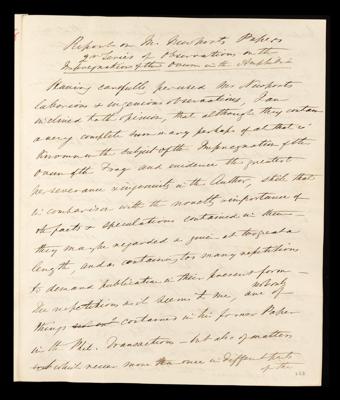 Report on Mr. Newport's Papers
Series of Observations on the
Impregnation of the Ovum in the Amphibia
Having carefully perused Mr Newport's
laborious & ingenious observations, I am
inclined to the opinion, that although they contain
a very complete perhaps of all that is
known on the subject of the Impregnation of the
Ovum of the Frog and evidence the greatest
perseverance & ingenuity in the Author, still that
in comparison with the novelty & importance of
the facts & speculations contained in them
they may be regarded as given at too great a
length, and as containing too many repetitions
to demand publication in their present form -
The repetitions as it seems to me, are not only of
things contained in his former Paper
in the Phil. Transactions - but also of matters
which recur more than once in different parts
of the